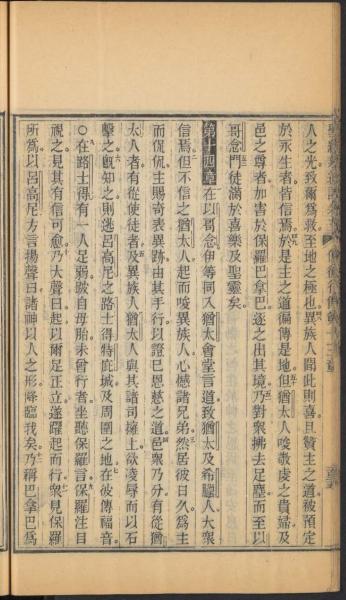 人之光致爾為救至地之極也異族人聞此則喜且贊主之道被預定
於永生者皆信焉於是主之道徧傳是地但猶太人唆敬虔之貴婦及
邑之尊者加害於保羅巴拿巴逐之出其境乃對衆拂去足塵而至以
哥念門徒滿於喜樂及聖靈矣
第十四章在以哥念伊等同入猶太會堂言道致猶太及希臘人大衆
信焉但不信之猶太人起而唆異族人心憾諸兄弟然居彼日久為主
而侃侃主賜奇表異跡由其手行以證巳恩慈之道邑衆乃分有從猶
太人者有從使徒者及異族人猶太人與其諸司擁上欲凌辱而以石
擊之旣知之則逃呂高尼之路士得特庇城及周圍之地在彼傳福音
○在路士得有一人足弱跛自母胎未曾行者坐聽保羅言保羅注目
視之見其有信可愈乃大聲曰起以爾足正立遂躍起而行衆見保羅
所為以呂高尼方言揚聲曰諸神以人之形降臨我矣乃稱巴拿巴為